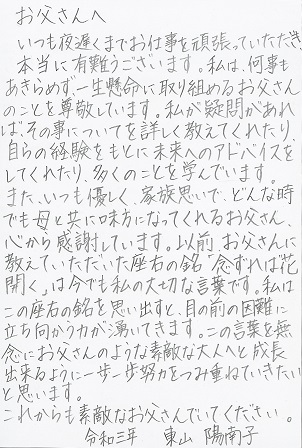 お父さんへ
いつも夜遅くまでお仕事を頑張っていただき、
本当に有難うございます。私は、何事も
あきらめず、一生懸命に取り組めるお父さん
のことを尊敬しています。私が疑問があれ
ば、その事についてを詳しく教えてくれたり、
自らの経験をもとに未来へのアドバイスを
してくれたり、多くのことを学んでいます。
また、いつも優しく、家族思いで、どんな時
でも母と共に味方になってくれるお父さん、
心から感謝しています。以前、お父さんに
教えていただいた座右の銘「念ずれば花
開く」は今でも私の大切な言葉です。私は
この座右の銘を思い出すと、目の前の困難に
立ち向かう力が湧いてきます。この言葉を無
念にお父さんのような素敵な大人へと成長
出来るように一歩一歩努力をつみ重ねていきたい
と思います。
これからも素敵なお父さんでいてください。
令和三年 東山 陽南子